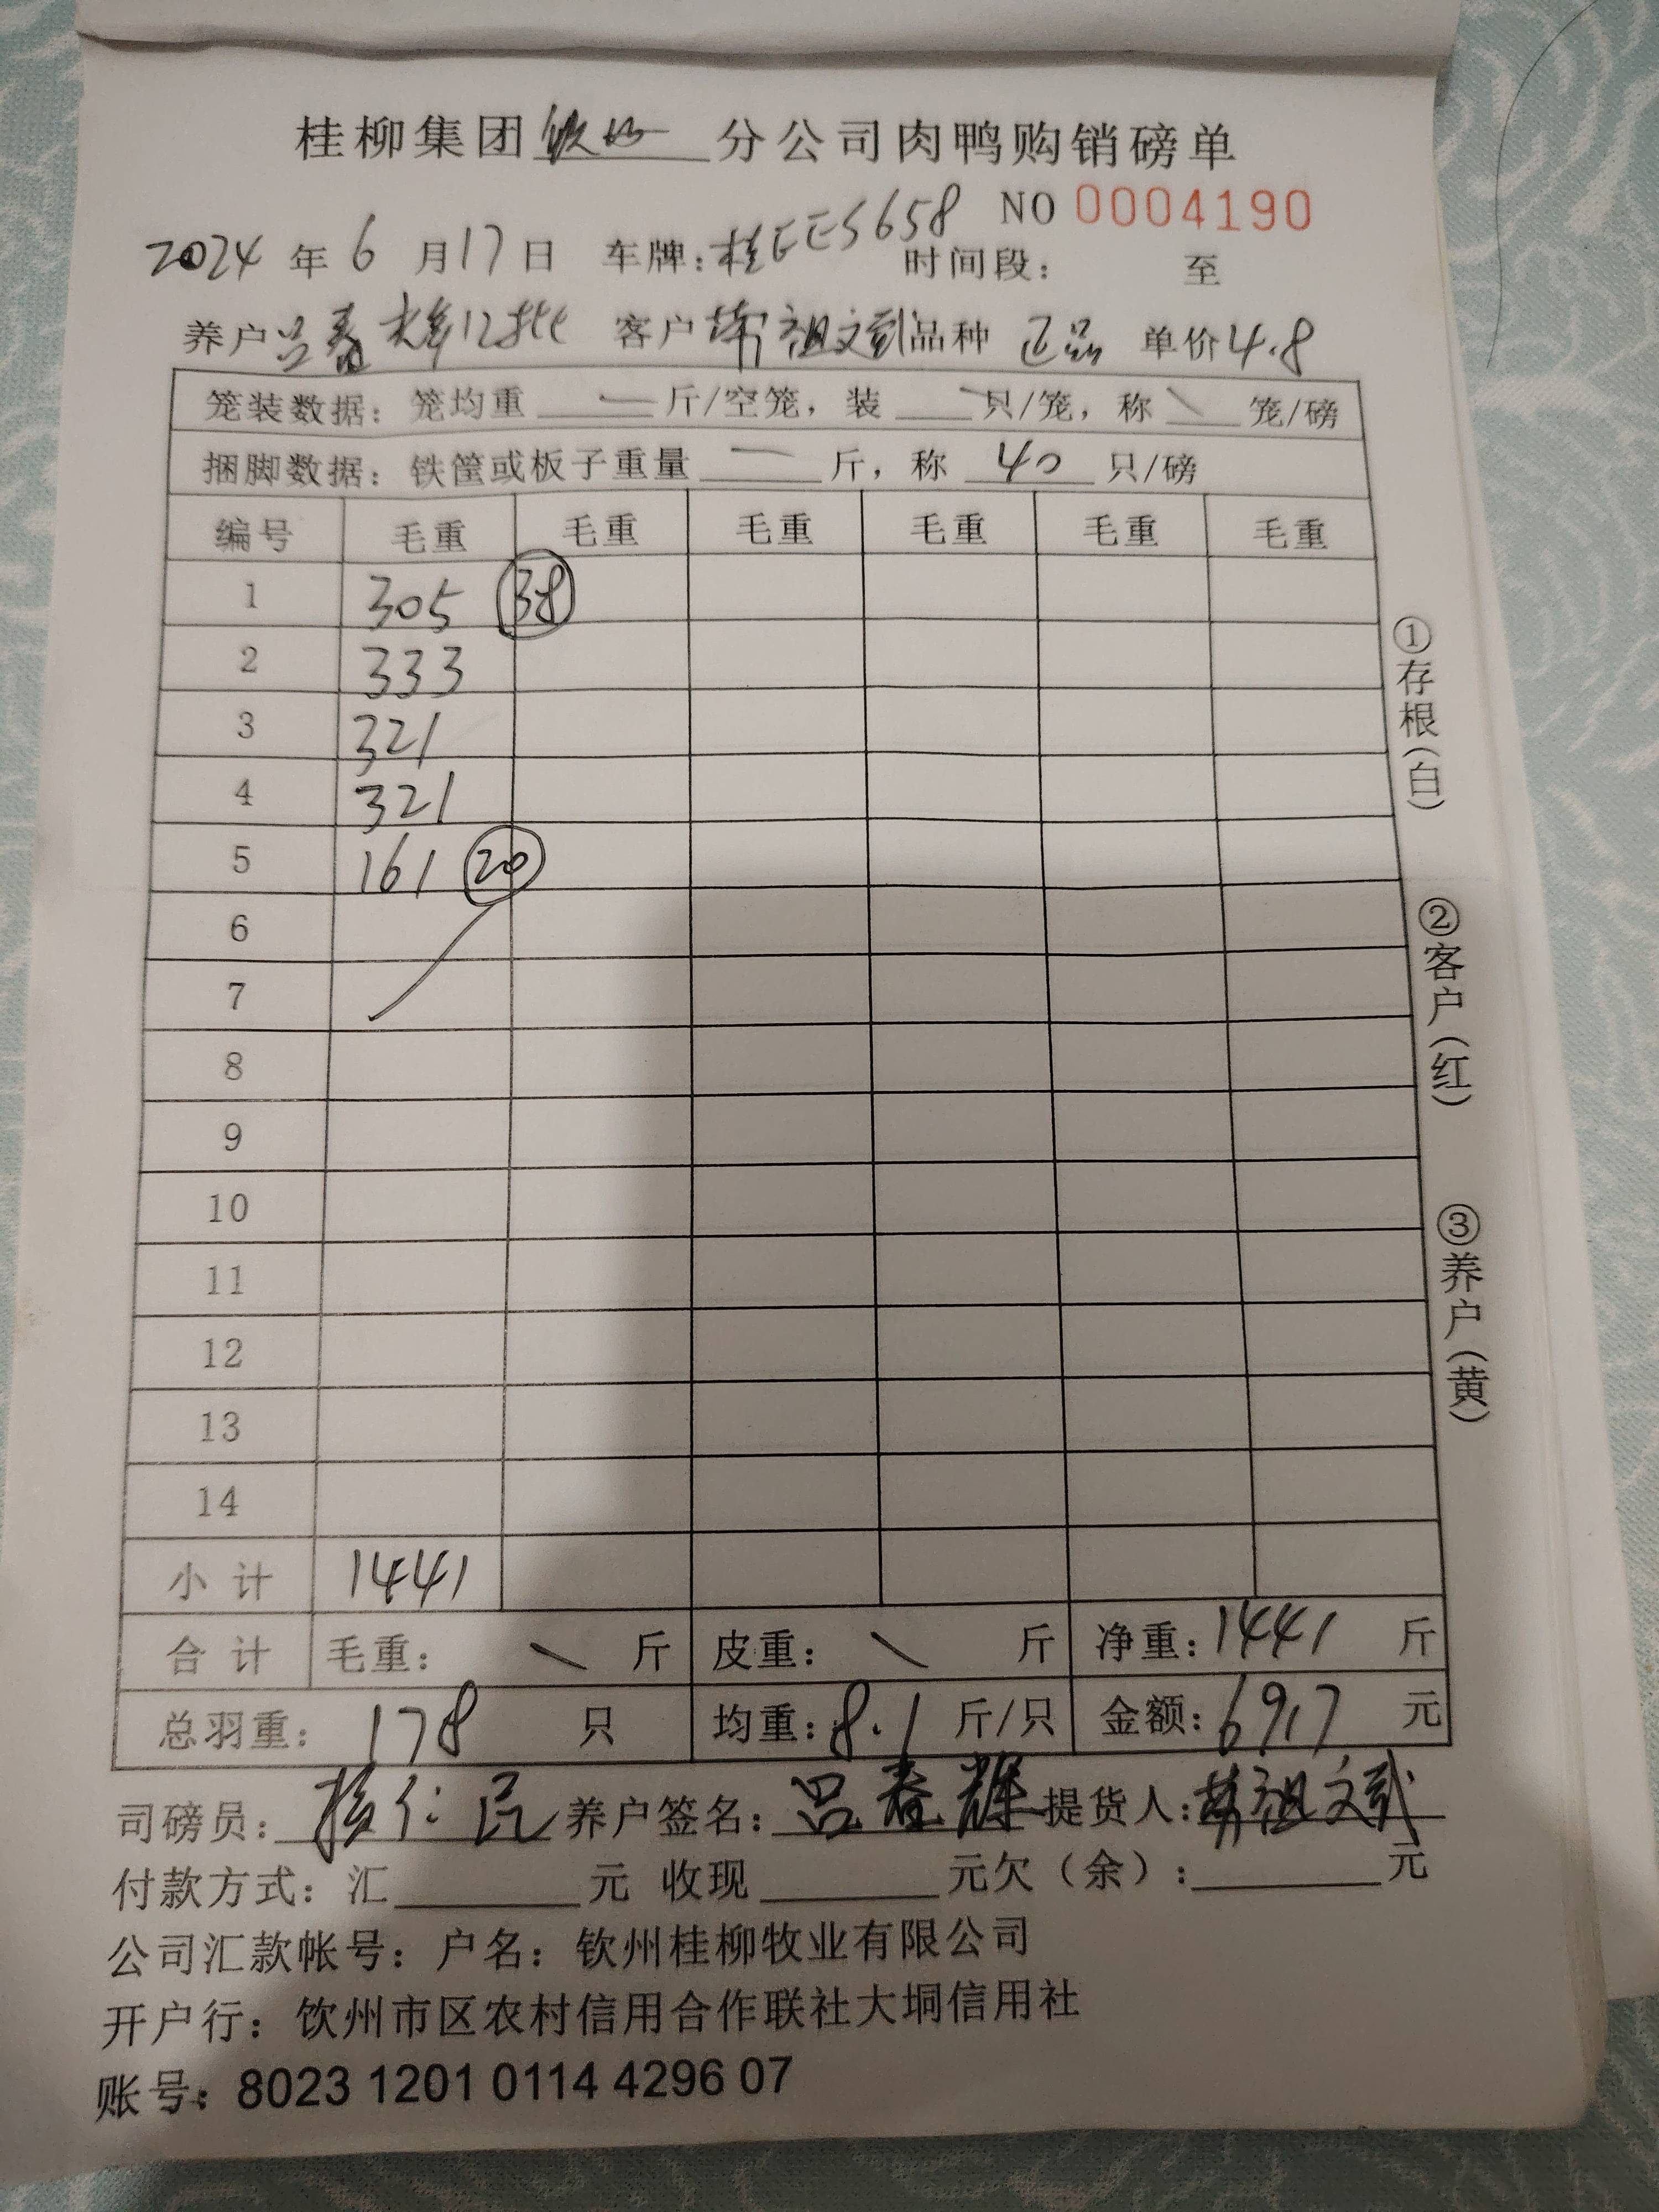 桂柳集团钦州分公司肉鸭购销磅单
NO 0004190
2024年6月17日 车牌:桂EES658 时间段: 至
养户吕春辉12批 客户 祖文武 品种 正品 单价4.8
笼装数据:笼均重 — 斤/空笼,装 \ 只/笼,称 \ 笼/磅
捆脚数据:铁筐或板子重量 — 斤,称 40 只/磅
编号 毛重 毛重 毛重 毛重 毛重 毛重
1 305 38
2 333
3 321
4 321
5 161 20
6
7
8
9
10
11
12
13
14
小计 1441
合计 毛重: \ 斤 皮重: \ 斤 净重:1441 斤
总羽重:178 只 均重:8.1 斤/只 金额:6917 元
司磅员: 仁民 养户签名:吕春辉 提货人: 祖文武
付款方式:汇 元 收现 元欠(余): 元
公司汇款帐号:户名:钦州桂柳牧业有限公司
开户行:饮州市区农村信用合作联社大垌信用社
账号:8023 1201 0114 4296 07
①存根(白)
②客户(红)
③养户(黄)